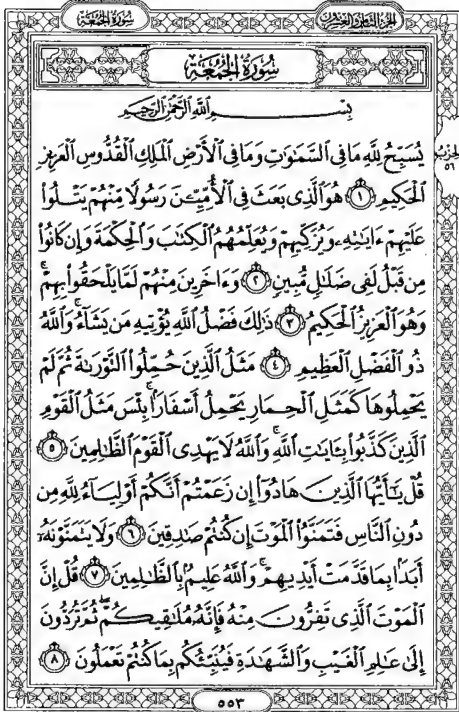 سُورَةُ الجُمُعَةِ
الجزء الثامن والعشرون
سُورَةُ الجُمُعَةِ
بِسْمِ ٱللَّهِ ٱلرَّحْمَٰنِ ٱلرَّحِيمِ
يُسَبِّحُ لِلَّهِ مَا فِي ٱلسَّمَٰوَٰتِ وَمَا فِي ٱلْأَرْضِ ٱلْمَلِكِ ٱلْقُدُّوسِ ٱلْعَزِيزِ
الحزب ٥٦
ٱلْحَكِيمِ ١ هُوَ ٱلَّذِي بَعَثَ فِي ٱلْأُمِّيِّـۧنَ رَسُولًا مِّنْهُمْ يَتْلُوا۟
عَلَيْهِمْ ءَايَٰتِهِۦ وَيُزَكِّيهِمْ وَيُعَلِّمُهُمُ ٱلْكِتَٰبَ وَٱلْحِكْمَةَ وَإِن كَانُوا۟
مِن قَبْلُ لَفِي ضَلَٰلٍ مُّبِينٍ ٢ وَءَاخَرِينَ مِنْهُمْ لَمَّا يَلْحَقُوا۟ بِهِمْ ۚ
وَهُوَ ٱلْعَزِيزُ ٱلْحَكِيمُ ٣ ذَٰلِكَ فَضْلُ ٱللَّهِ يُؤْتِيهِ مَن يَشَآءُ ۚ وَٱللَّهُ
ذُو ٱلْفَضْلِ ٱلْعَظِيمِ ٤ مَثَلُ ٱلَّذِينَ حُمِّلُوا۟ ٱلتَّوْرَىٰةَ ثُمَّ لَمْ
يَحْمِلُوهَا كَمَثَلِ ٱلْحِمَارِ يَحْمِلُ أَسْفَارًۢا ۚ بِئْسَ مَثَلُ ٱلْقَوْمِ
ٱلَّذِينَ كَذَّبُوا۟ بِـَٔايَٰتِ ٱللَّهِ ۚ وَٱللَّهُ لَا يَهْدِي ٱلْقَوْمَ ٱلظَّٰلِمِينَ ٥
قُلْ يَٰٓأَيُّهَا ٱلَّذِينَ هَادُوٓا۟ إِن زَعَمْتُمْ أَنَّكُمْ أَوْلِيَآءُ لِلَّهِ مِن
دُونِ ٱلنَّاسِ فَتَمَنَّوُا۟ ٱلْمَوْتَ إِن كُنتُمْ صَٰدِقِينَ ٦ وَلَا يَتَمَنَّوْنَهُۥٓ
أَبَدًۢا بِمَا قَدَّمَتْ أَيْدِيهِمْ ۚ وَٱللَّهُ عَلِيمٌۢ بِٱلظَّٰلِمِينَ ٧ قُلْ إِنَّ
ٱلْمَوْتَ ٱلَّذِي تَفِرُّونَ مِنْهُ فَإِنَّهُۥ مُلَٰقِيكُمْ ۖ ثُمَّ تُرَدُّونَ
إِلَىٰ عَٰلِمِ ٱلْغَيْبِ وَٱلشَّهَٰدَةِ فَيُنَبِّئُكُم بِمَا كُنتُمْ تَعْمَلُونَ ٨
٥٥٣